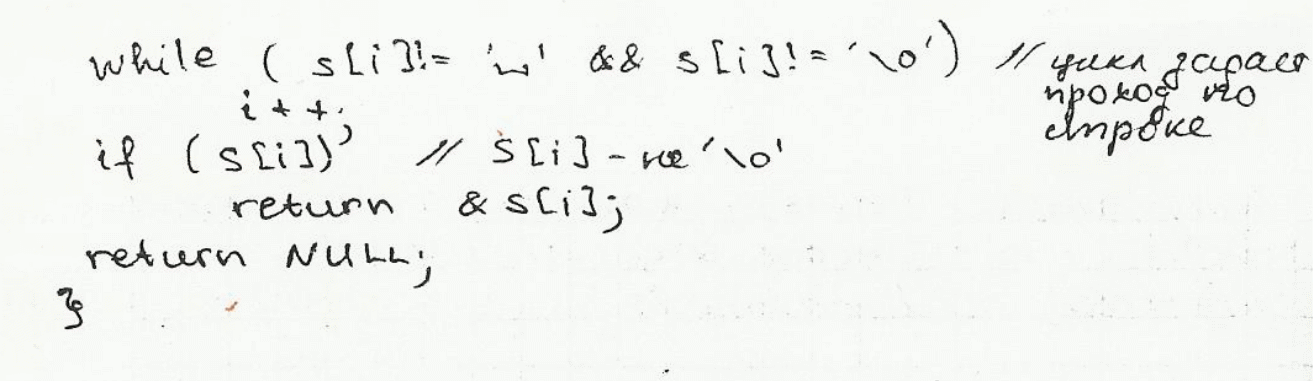 while ( s[i]!= '␣' && s[i]!= '\0') // цикл задает
проход по
строке
i++;
if (s[i]) // s[i] - не '\0'
return &s[i];
return NULL;
}